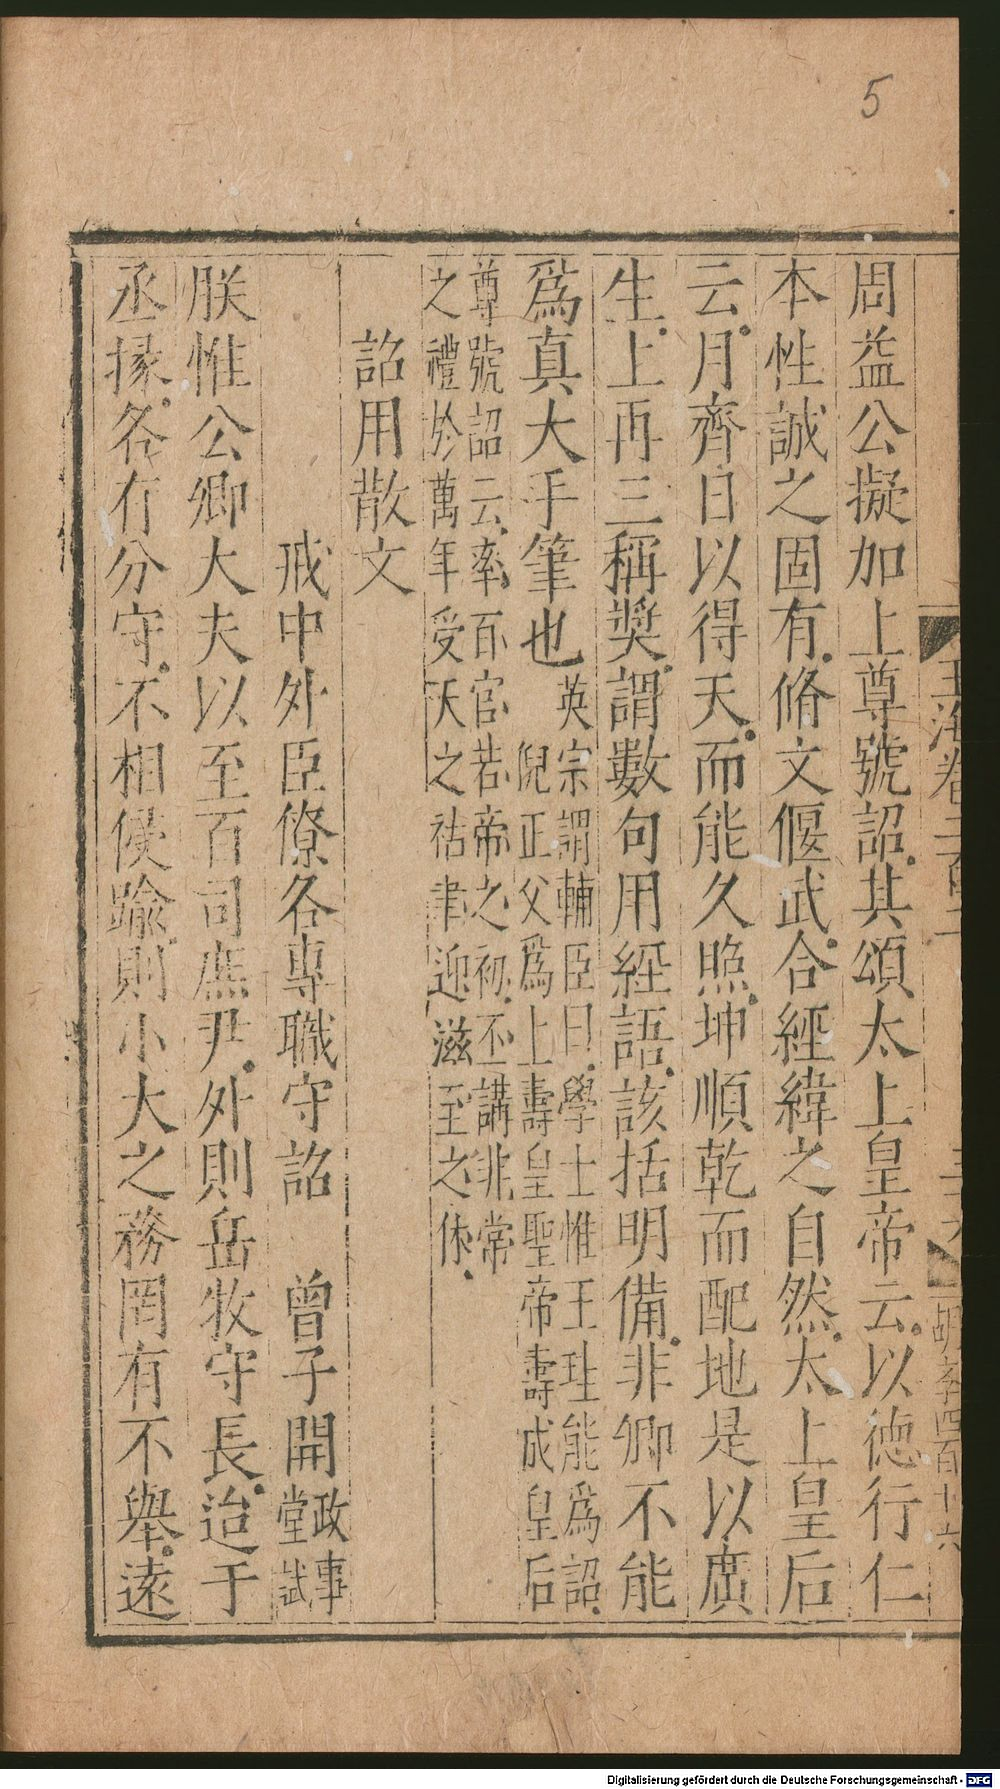 5
玉海卷二百二
胡孝四百十六
周益公擬加上尊號詔其頌太上皇帝云以德行仁
本性誠之固有脩文偃武合經緯之自然太上皇后
云月齊日以得天而能久照坤順乾而配地是以廣
生上再三稱奬謂數句用經語該括明備非卿不能
爲真大手筆也英宗謂輔臣曰學士惟王珪能爲詔
倪正父爲上壽皇聖帝壽成皇后
尊號詔云率百官若帝之初丕講非常
之禮於萬年受天之祜聿迎滋至之休
詔用散文
戒中外臣僚各專職守詔 曾子開政事
堂試
朕惟公卿大夫以至百司庶尹外則岳牧守長迨于
丞掾各有分守不相侵踰則小大之務罔有不舉遠
Digitalisierung gefördert durch die Deutsche Forschungsgemeinschaft - DFG